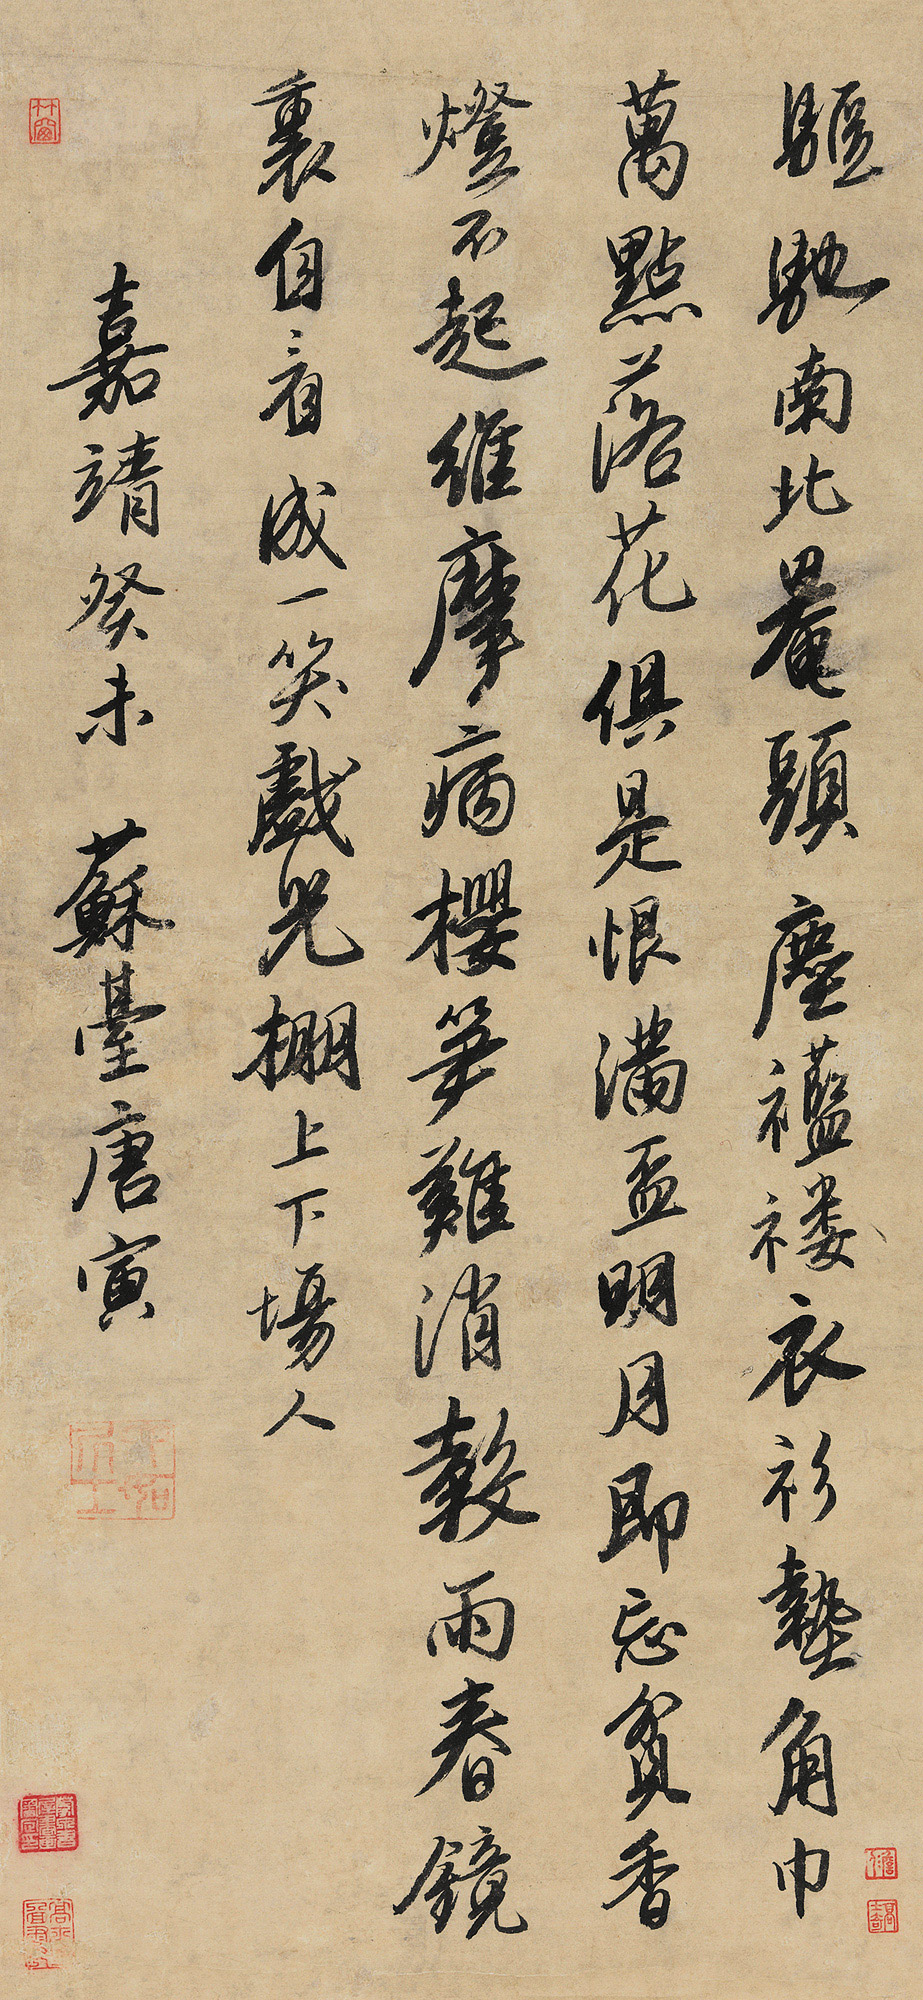 驅馳南北罨頭塵襤褸衣衫墊角巾
萬點落花俱是恨滿盃明月即忘貧香
燈不起維摩病櫻笋難消穀雨春鏡
裏自看成一笑戲光棚上下場人
嘉靖癸未 蘇臺唐寅